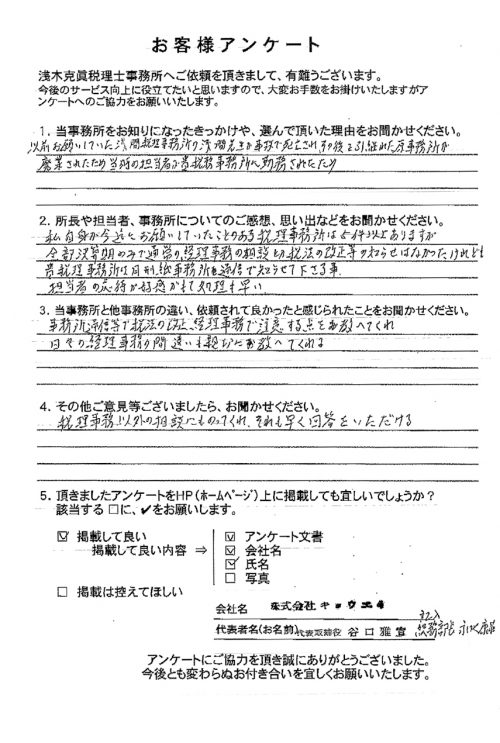 お客様アンケート
浅木克眞税理士事務所へご依頼を頂きまして、有難うございます。
今後のサービス向上に役立てたいと思いますので、大変お手数をお掛けいたしますがア
ンケートへのご協力をお願いいたします。
1. 当事務所をお知りになったきっかけや、選んで頂いた理由をお聞かせください。
以前お願いしていた浅間税理事務所の浅間先生が事故で死亡され、その後を引継れた原事務所が
廃業されたため当所の担当者が貴税務事務所に勤務されたため
2. 所長や担当者、事務所についてのご感想、思い出などをお聞かせください。
私自身が今迄にお願いしていたことのある税理事務所は5件以上ありますが
全部決算期のみで通常の経理事務の相談と税法の改正等の知らせはなかったけれども
貴税理事務所は月刊紙事務所通信で知らせて下さる事
担当者の応対が好感がもて処理も早い
3. 当事務所と他事務所の違い、依頼されて良かったと感じられたことをお聞かせください。
事務所通信等で税法の改正、経理事務で注意する点をお教へてくれ
日々の経理事務の間違いも親切にお教へてくれる
4. その他ご意見等ございましたら、お聞かせください。
税理事務以外の相談にものってくれ、それも早く回答をいただける
5. 頂きましたアンケートをHP(ホームページ)上に掲載しても宜しいでしょうか?
該当する □に、✔をお願いします。
☑ 掲載して良い
掲載して良い内容 ⇒
☑ アンケート文書
☑ 会社名
☑ 氏名
□ 写真
□ 掲載は控えてほしい
会社名 株式会社キョウエキ
代表者名(お名前) 代表取締役 谷口雅宣
記入
総務部長
アンケートにご協力を頂き誠にありがとうございました。
今後とも変わらぬお付き合いを宜しくお願いいたします。